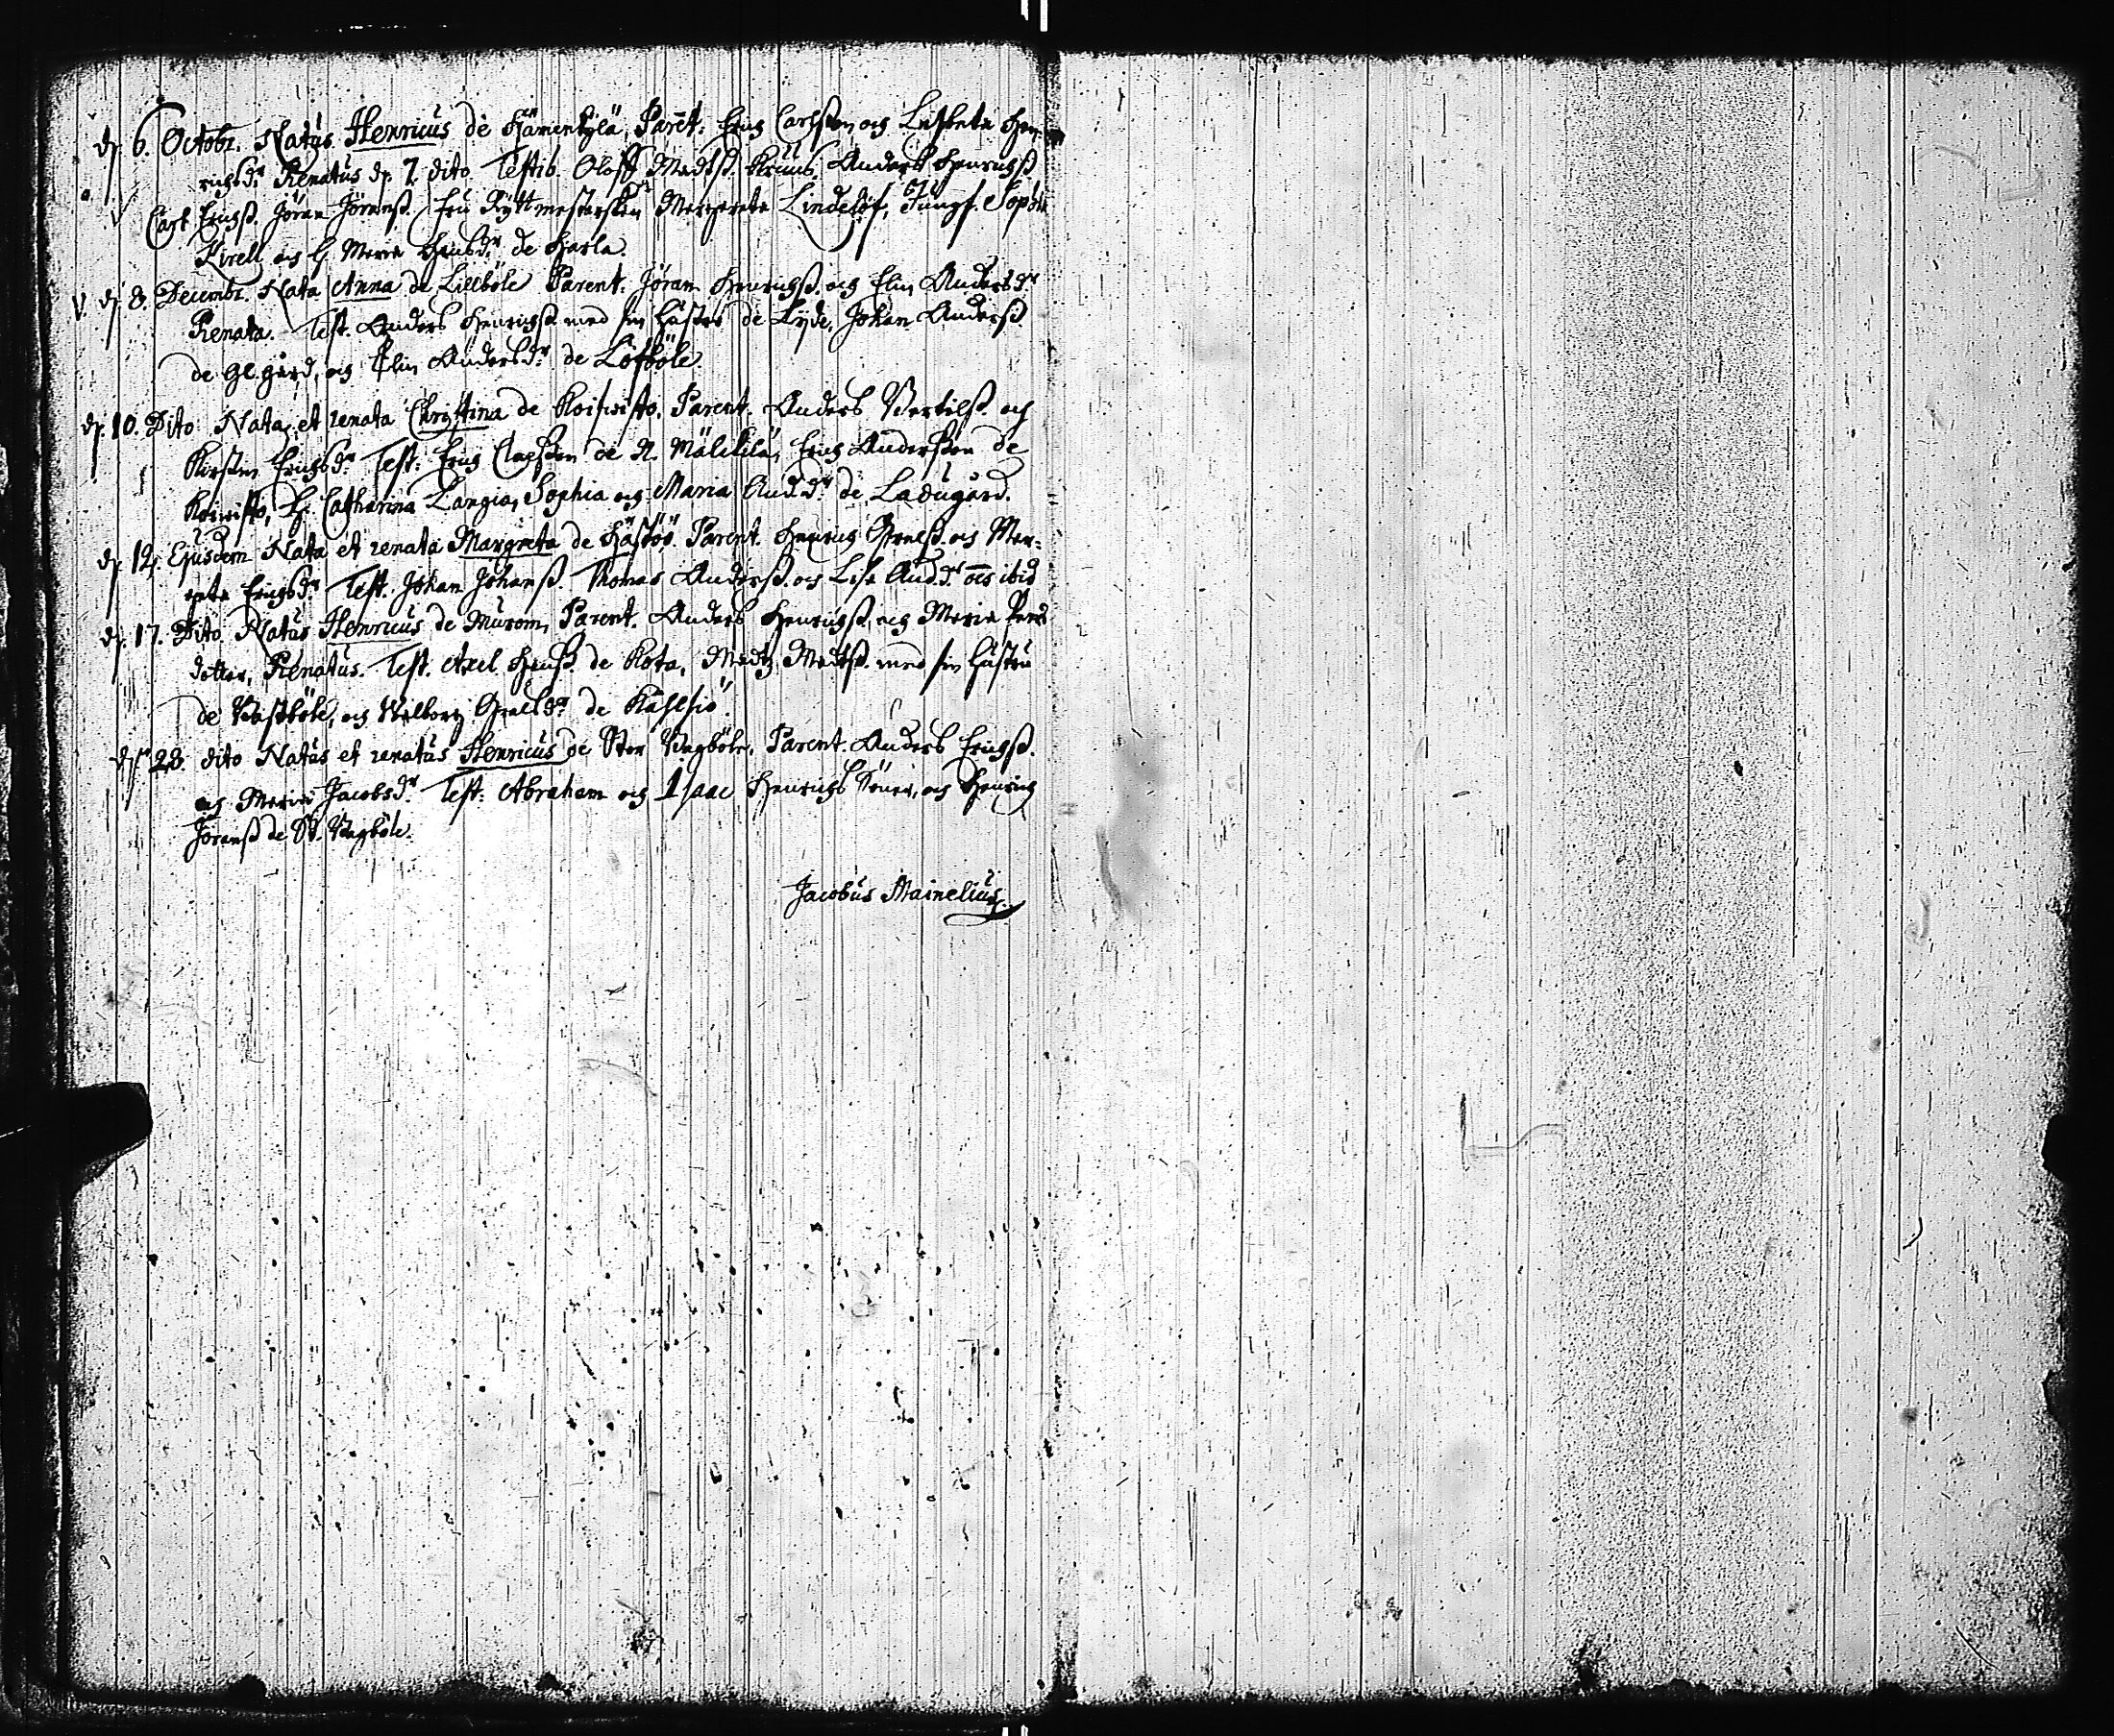 d. 6. Octobr. Natus Henricus de Hämenkylä, Parēt. Erich Carlsson och Lisbeta Hen-
richsdr. Renatus d. 7. dito Testib. Oloff Madtsß. Anders Henrichß
Carl Erichß. Jöran Jöranß. Fru Ryttmesterskan Margareta Lindelöf, Jungf. Sophia
Kirell och H. Maria Hansdr. de Harla.
V. d. 8. Decembr. Nata Anna de Lillböle Parent. Jöran Henrichß. och Elin Andersdr
Renata. Test. Anders Henrichß med sin hustru de Lyde, Johan Anderß
de Gl. gård, och Elin Andersdr. de Löfböle
d. 10. Dito Nata et renata Christina de Koiwisto, Parent. Anders Bertilß. och
Kirstin Erichsdr. Test: Erich Claeßon de N. Mälkilä, Erich Anderßon de
Koiwisto, H. Catharina Langia, Sophia och Maria And.dr. de Ladugård.
d. 12. Ejusdem Nata et renata Margreta de Hästöö. Parent. Henrich Grelß. och Mar-
greta Erichsdr. Test. Johan Johanß. Thomas Anderß. och Lisa And.dr. ōēs ibid
d. 17. Dito Natus Henricus de Murom, Parent. Anders Henrichß. och Maria Pers
dotter, Renatus. Test. Axel Henß. de Kota, Madtz Madtß. med sin hustru
de Wästböle, och Walborg Grelsdr. de Kahlsiö.
d. 28. dito Natus et renatus Henricus de Stor Bagböle, Parent. Anders Erichß.
och Maria Jacobsdr. Test: Abraham och Isaac Henrichs Söner, och Henrich
Jöranß de St. Bagböle.
Jacobus Mainelius